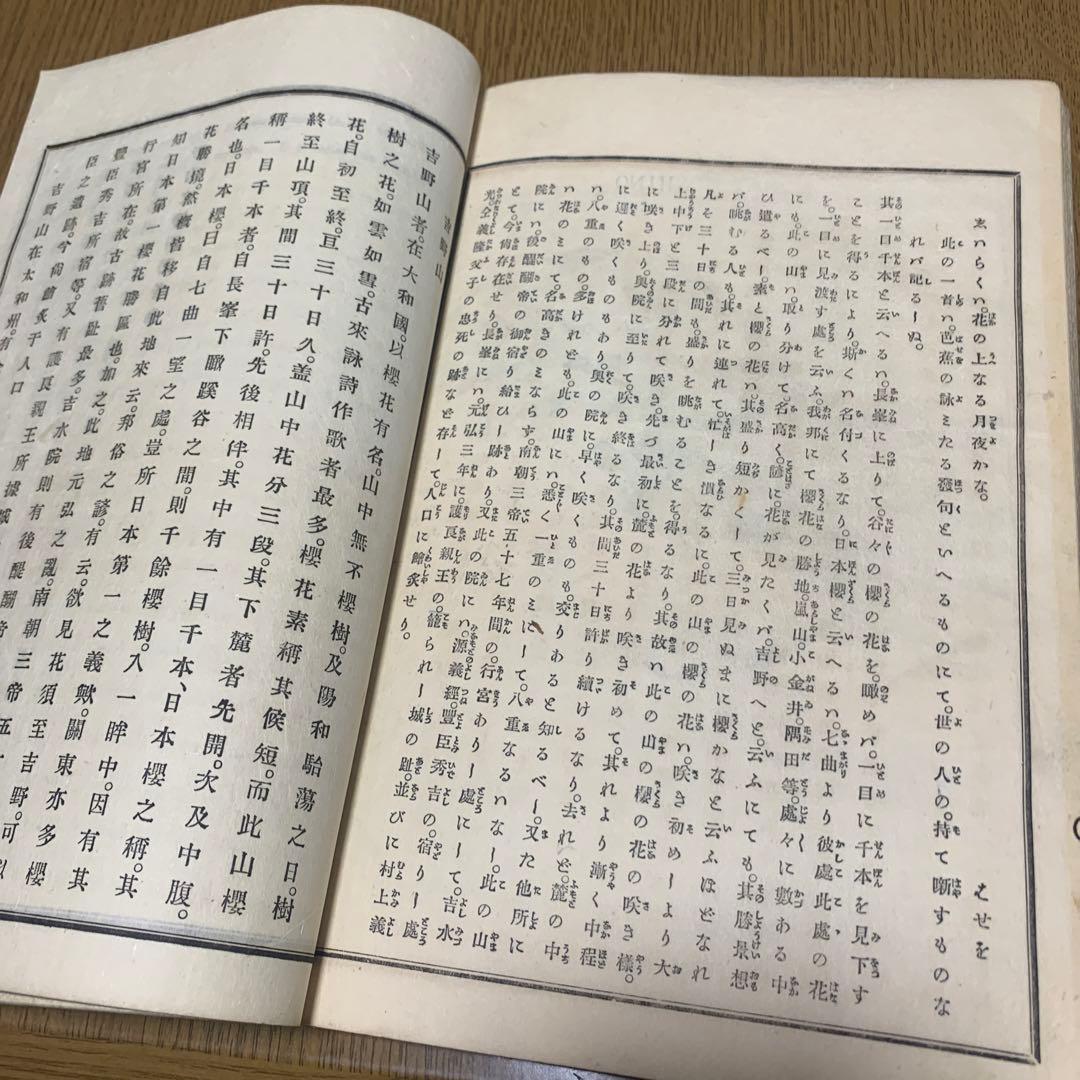 ゑハらくハ。花の上なる月夜かな。 はせを
此の一首ハ。芭蕉の詠ミたる發句といへるものにて。世の人の。持て囃すものな
れバ記るしぬ。
其一目千本と云へるハ。長峯に上りて。谷々の櫻の花を。瞰めバ。一目に千本を見下す
ことを得るにより。斯くハ名付くるなり。日本櫻と云へるハ。七曲より彼處此處の花
を。一目に見渡す處を云ふ。我邦にて櫻花の勝地。嵐山。小金井。隅田等。處々に數ある中
にも。此の山ハ。取り分けて。名高く。諺に。花が見たくバ。吉野へと。云ふにても。其勝景想
ひ遣るべし素と櫻の花ハ。其盛り短かくして。三日見ぬまに櫻かなと云ふほどなれ
バ。眺むる人も。其れに連れて。忙しき慣なるに。此の山の櫻の花ハ。咲き初めしより大
凡そ三十日の間も。盛りを眺むることを。得るなり。其故ハ此の山の櫻の花の咲き樣。
上中下と三段に分れて咲き。先づ最初に。麓の花より咲き初めて。其れより漸く中程
に咲き上り。奧院に至りて。咲き終るなり。其間三十日許り續けるなり。去れど。麓の中
に遲く咲くものもあり。奧の院に。早く咲くものも。交りあると知るべし。又た他所に
ハ。八重のもの。多けれども。此の山にハ。悉く一重のミにして。八重なるハなし。此の山
ハ花のミにて。名高きのミならず。南朝三帝五十七年間の。行宮ありし處にして。吉水
院にハ。後醍醐帝の御宿り給ひし跡あり。又此の院にハ。源義經。豐臣秀吉の。宿りし處
とて。今尙存在せり。長峯にハ。元弘三年に。護良親王の。籠られし城の趾。並びに村上義
光。仝義隆父子の忠死の跡など存して。人口に鱠炙せり。
吉野山
吉野山者。在大和國。以櫻花有名。山中無不櫻樹。及陽和駘蕩之日。樹
樹之花。如雲如雪。古來詠詩作歌者最多。櫻花素稱其候短。而此山櫻
花。自初至終。亘三十日久。盖山中花分三段。其下麓者先開。次及中腹。
終至山頂。其間三十日許。先後相伴。其中有一目千本、日本櫻之稱。其
稱一目千本者。自長峯下瞰蹊谷之間。則千餘櫻樹。入一眸中。因有其
名也。日本櫻。日自七曲一望之處。豈所日本第一之義歟。關東亦多櫻
花勝境。然槪皆移自此地來云。邦俗之諺。有云。欲見花須至吉野。可以
知日本第一櫻花勝區也。加之。此地元弘之亂。南朝三帝五
行宮所在。故古跡舊趾最多。吉水院則有後醍醐帝
豐臣秀吉所宿等。又有護良親王所據
臣之遺跡。今尙膾炙于人口
吉野山在太和州。有